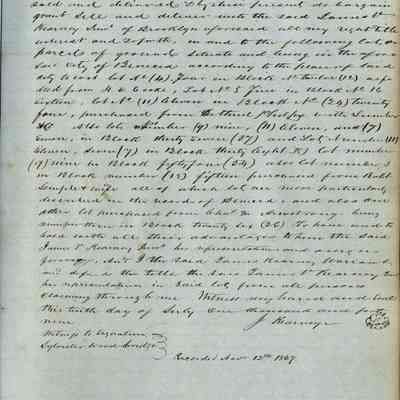 sold and delivered by these present do bargain
grant sell and deliver unto the said James
Kearney of Brooklyn aforesaid all my right title
interest and in and to the following lots or
parcels of ground situate and being in the afore
said City of Benicia according to the plan of said
City to wit lot No (4) four in Block No twelve (12)
from H. W. Goode, Lot No 5 five in Block No 16
sixteen, lot No (11) eleven in Block No (24) twenty
four, purchased from
also lots number (9) nine, (11) eleven, and (7)
seven, in Block thirty seven (37) and Lot number (11)
eleven, seven (7) in Block thirty eight lot number
(9) nine in Block fifty four (54) also lot number
in Block number (15) fifteen purchased from Robt
Semple & wife all of which lots are more particularly
described in the of Benicia, and also one
other lot purchased from Armstrong, being
number three in Block twenty six (26) To have and to
hold with all their advantages to him the said
James Kearney his representatives and assigns
forever, And I the said James Kearney Warrant
and defend the title the said James Kearney
his representatives in said lots from all persons
claiming through me Witness my hand and seal
this tenth day of July One thousand
nine J Kearney
Witness to signature
Sylvester
Recorded Nov 12th 1849